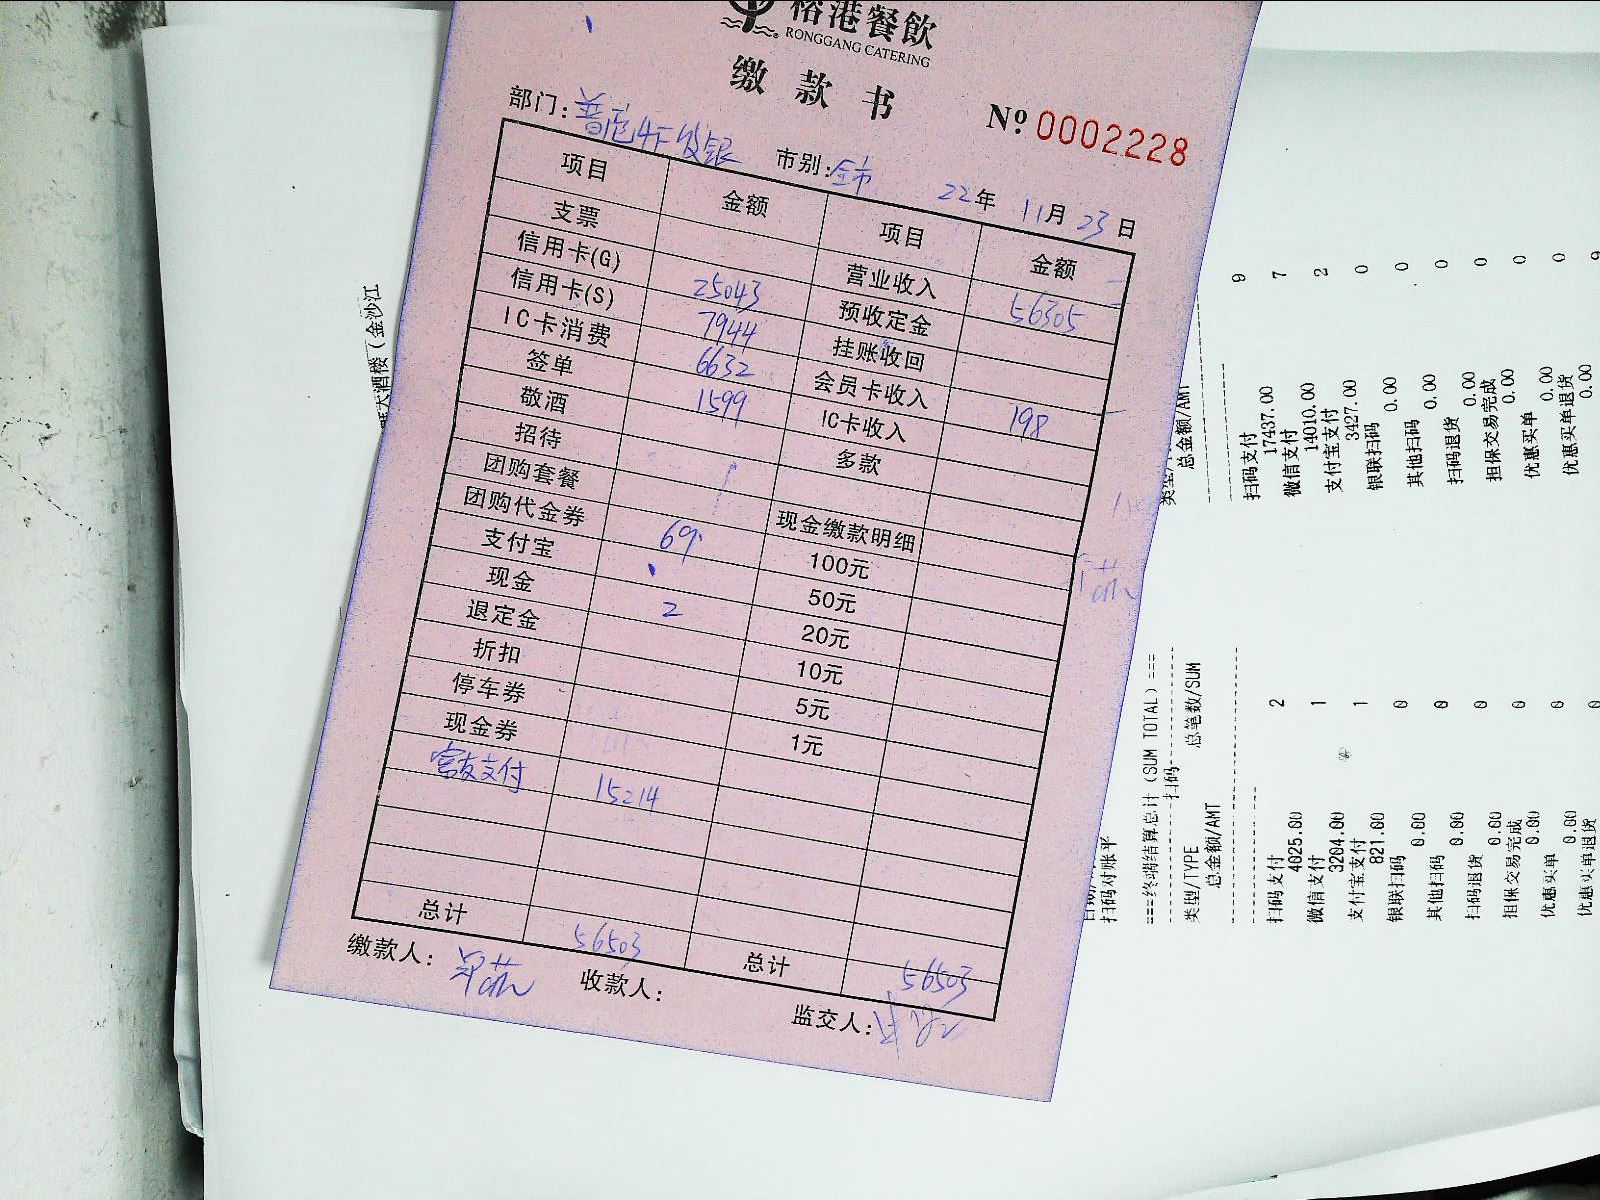 榕港餐飲
RONGGANG CATERING
缴款书
№ 0002228
部门: 普陀 收银 市别: 全市 22年 11月 23日
项目 金额 项目 金额
支票 营业收入 56305
信用卡(G) 25043 预收定金
信用卡(S) 7944 挂账收回
IC卡消费 6632 会员卡收入 198
签单 1599 IC卡收入
敬酒 多款
招待
团购套餐 现金缴款明细
团购代金券 69 100元
支付宝 50元
现金 2 20元
退定金 10元
折扣 5元
停车券 1元
现金券
富友支付 15214
总计 56503 总计 56503
缴款人: 收款人: 监交人:
大酒楼(金沙江
总金额/AMT
扫码支付 9
17437.00
微信支付 7
14010.00
支付宝支付 2
3427.00
银联扫码 0
0.00
其他扫码 0
0.00
扫码退货 0
0.00
担保交易完成 0
0.00
优惠买单 0
0.00
优惠买单退货
0.00
扫码对账平
===终端结算总计(SUM TOTAL)===
扫码
类型/TYPE 总笔数/SUM
总金额/AMT
扫码支付 2
4025.00
微信支付 1
3204.00
支付宝支付 1
821.00
银联扫码 0
0.00
其他扫码 0
0.00
扫码退货 0
0.00
担保交易完成 0
0.00
优惠买单 0
0.00
优惠买单退货